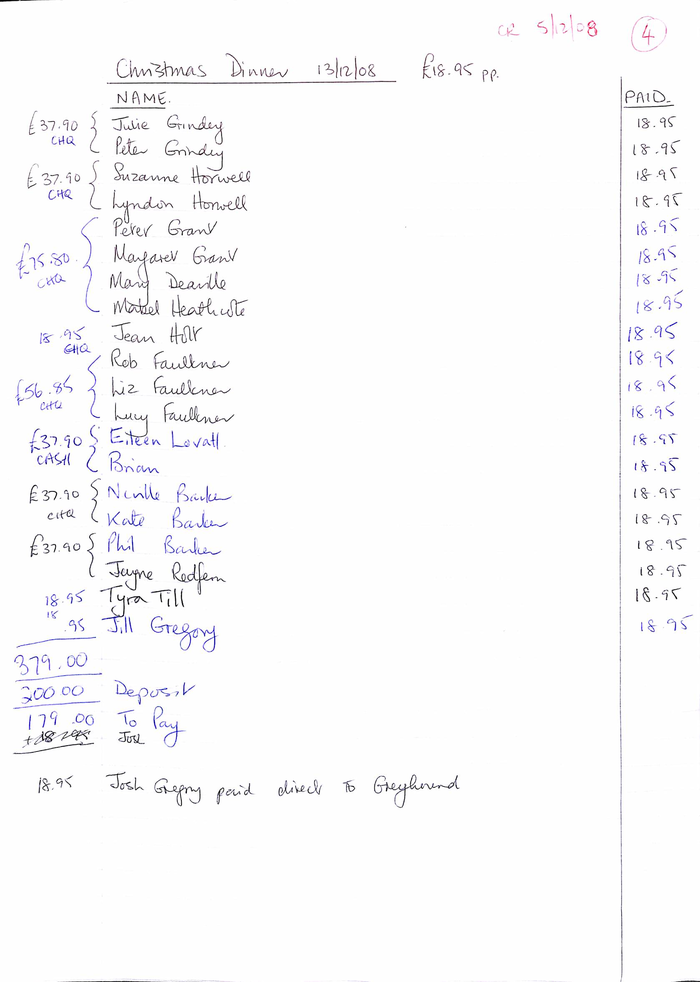 CR 5/12/08 4
Christmas Dinner 13/12/08 £18.95 pp.
NAME. PAID.
£37.90 Julie Grindey 18.95
CHQ Peter Grindey 18.95
£37.90 Suzanne Horwell 18.95
CHQ Lyndon Horwell 18.95
Peter Grant 18.95
£75.80 Margaret Grant 18.95
CHQ Mary Deaville 18.95
Mabel Heathcote 18.95
18.95 Jean Holt 18.95
CHQ
Rob Faulkner 18.95
£56.85 Liz Faulkner 18.95
CHQ Lucy Faulkner 18.95
£37.90 Eileen Lovatt 18.95
CASH Brian 18.95
£37.90 Neville Barker 18.95
CHQ Kate Barker 18.95
£37.90 Phil Barker 18.95
Jayne Redfern 18.95
18.95 Tyra Till 18.95
18.95 Jill Gregory 18.95
379.00
200.00 Deposit
179.00 To Pay
Josh
18.95 Josh Gregory paid direct to Greyhound